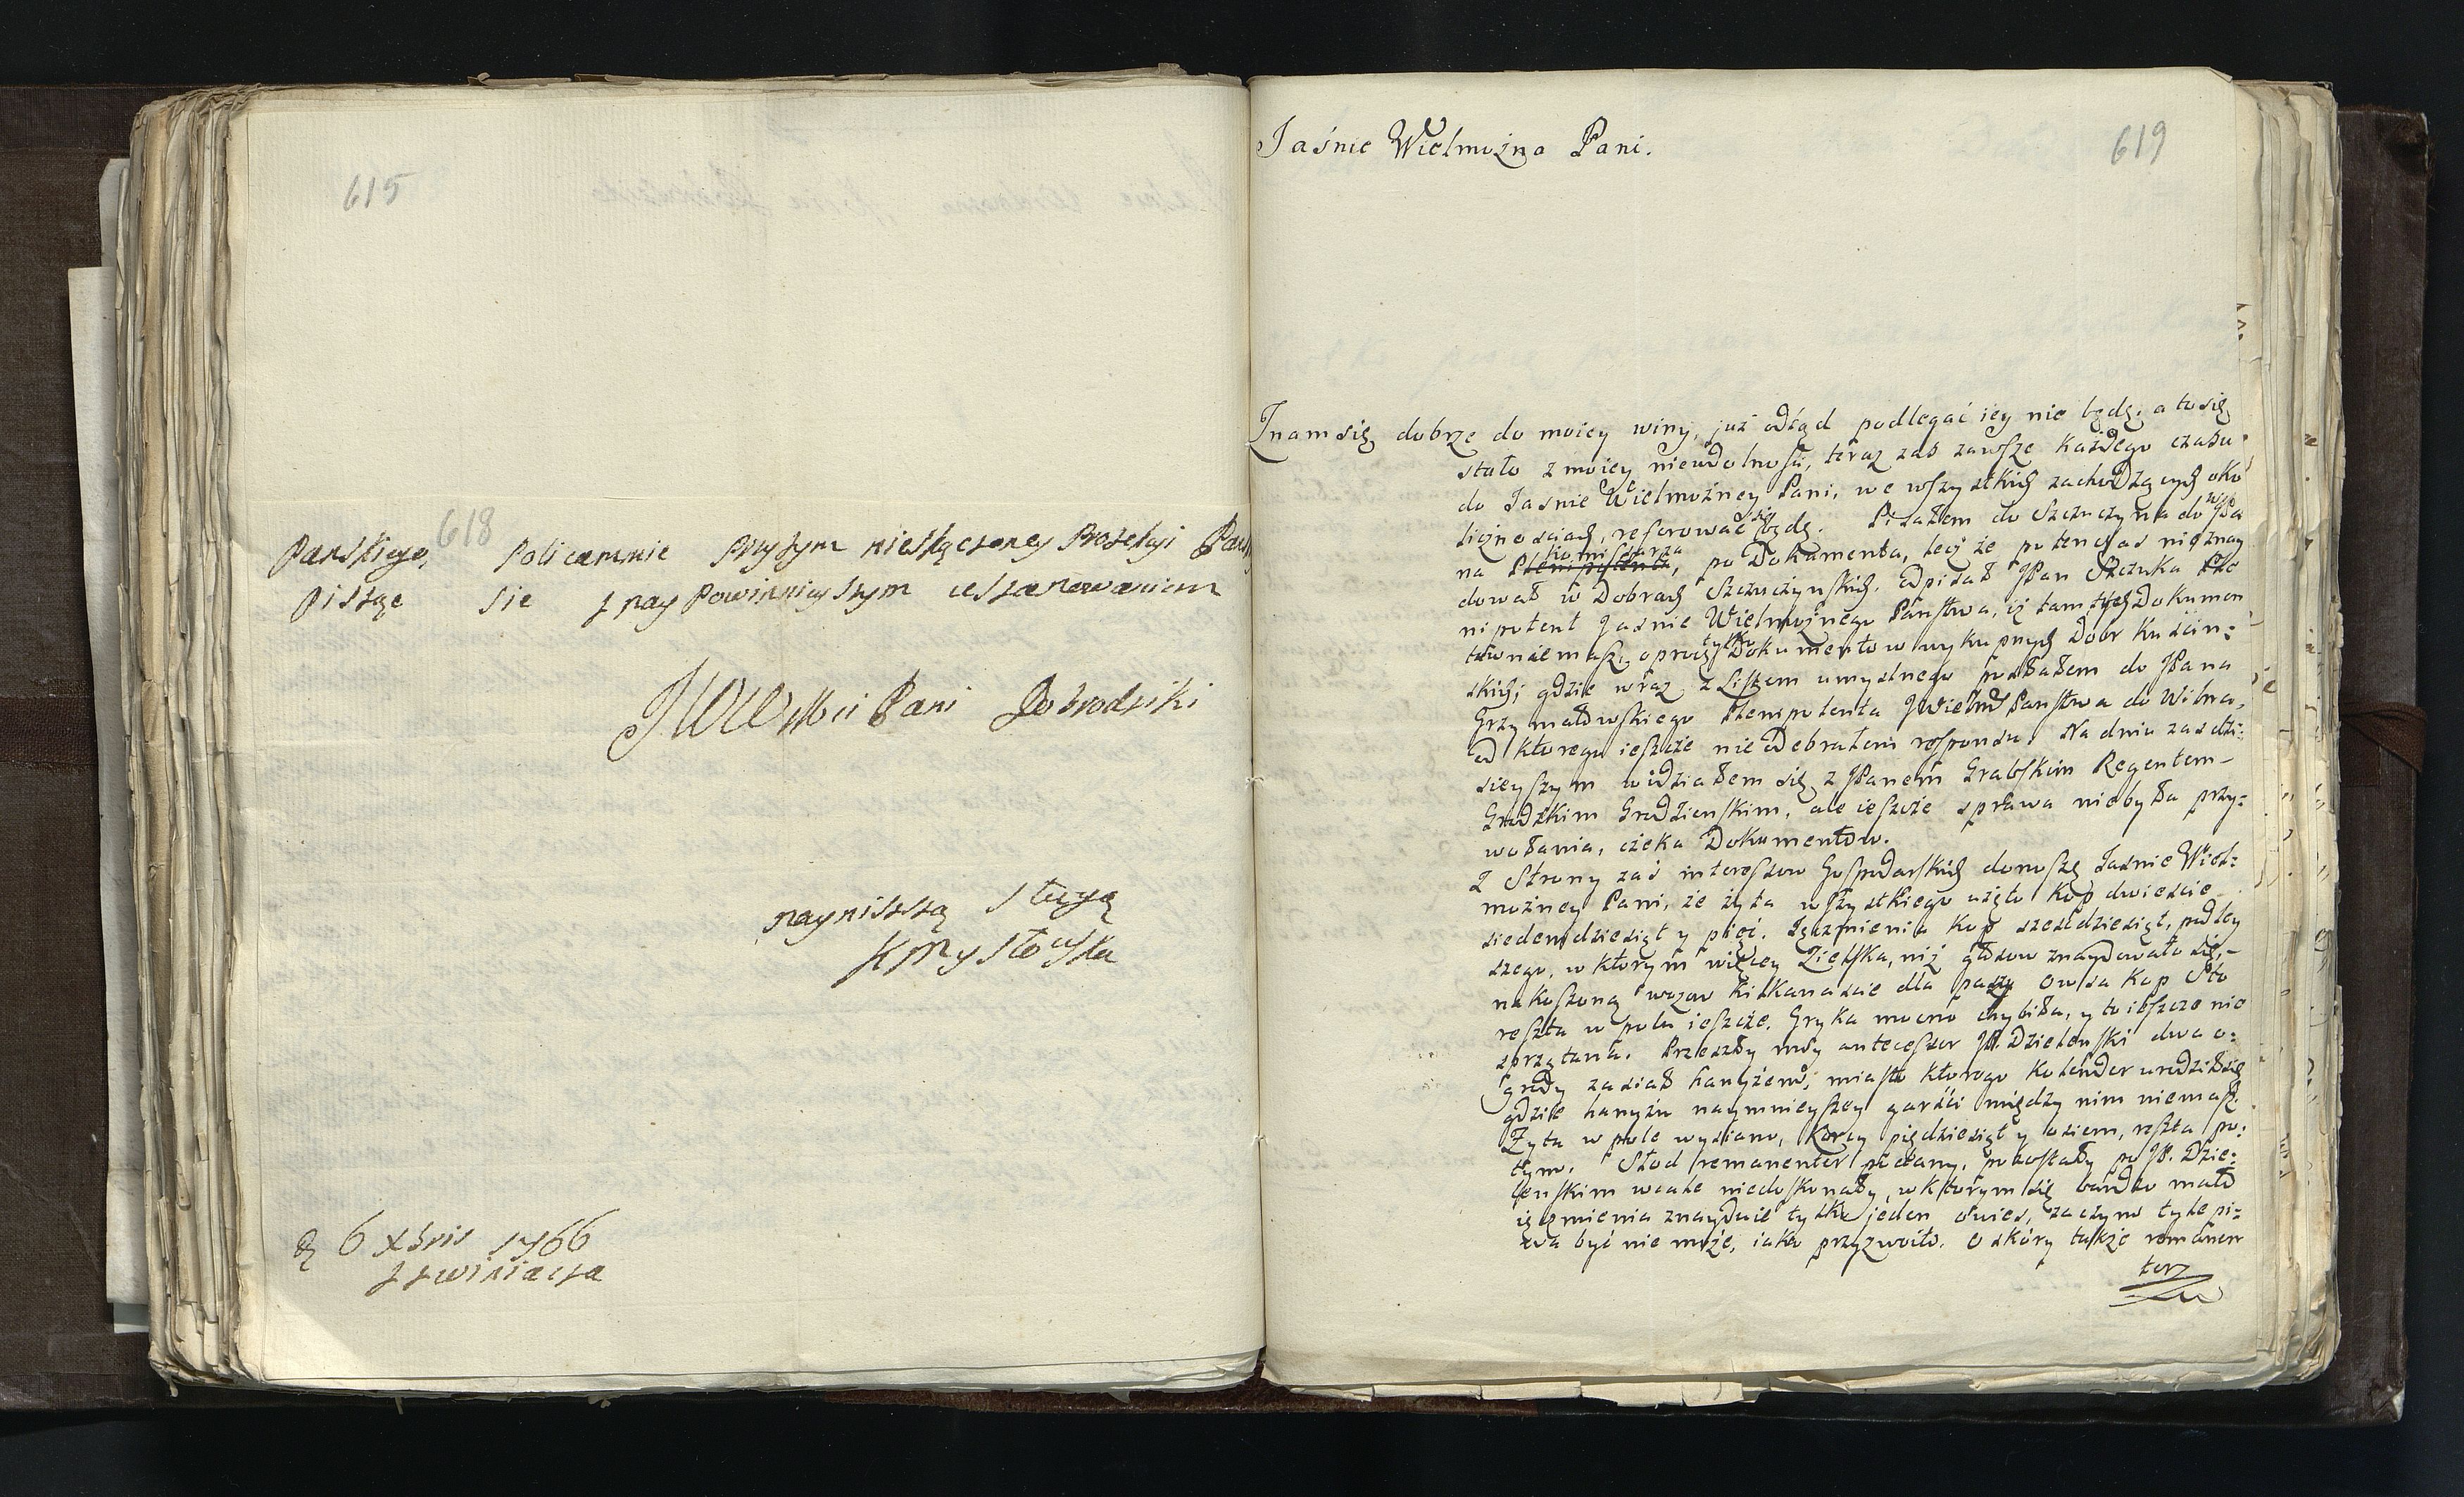 615
618
Panskiego, Policamnie Przytym nieskączoney Protekcji Pańs
Piszące Sie z nay Powinnieyszym uszanowaniem
JWWMci Pani Dobrodziki
naynisszą Sługą
KMysłoska
d 6 Xbris 1766
z Swiniacza
619
Jaśnie Wielmożna Pani.
Znam się dobrze do moiey winy, już odtąd podlegać iey nie będę, a to się
stało z moiey nieudolności, teraz zas zawsze każdego czasu
do Jasnie Wielmożney Pani, we wszystkich zachodzących oko
licznosciach, referować się będę. Pisałem do Szczuczyna do JPa
na Plenipotenta kommissarza, po Dokumenta, lecz że po tenczas nie znay
dował w Dobrach Szczuczynskich, odpisał JPan Szczuka Ple
nipotent Jasnie Wielmożnego Państwa, iż tam tych Dokumen
tow niemasz, oprocz tylko Dokumentow wykupnych Dobr Kuscin:
skich; gdzie wraz z Listem umyslnego posłałem do JPana
Grzymałowskiego Plenipotenta JWielm Państwa do Wilna,
od ktorego ieszcze nieodebrałem responsu. Na dniu zas dzi:
sieyszym widziałem się z JPanem Grabskim Regentem
Grodzkim Grodzienskim, ale ieszcze sprawa niebyła przy:
wołania, czeka Dokumentow.
Z Strony zaś interessow Gospodarskich donoszę Jasnie Wiel:
możney Pani, że żyta wszystkiego użęto Kop dwiescie
siedemdziesiąt y pięć. Jęczmienia Kop szesdziesiąt, podley
szego, w ktorym więcey Zielska, niż głosow znaydowało się,
nakoszoną wozow kilkanascie dla paszy Owsa Kop Sto
reszta w polu ieszcze. Gryka mocno chybiła, y to ieszcze nie
sprzątana. Przeszły moy antecessor JP. Dzielenski dwa o:
grody zasiał hanyżem, miasto ktorego Kolender urodził się
gdzie hanyżu naymnieyszey garści między nim niemasz.
Zyta w pole wysiano, Korcy piędziesiąt y osiem, reszta po:
tym. Słod remanenter podany, pozostały po JP. Dzie:
lenskim wcale niedoskonały, w ktorym się bardzo mało
ięczmienia znayduie tylko jeden owies, zaczym tyle pi:
wa być nie może, iako przyzwoito. O skóry także remanen
ter